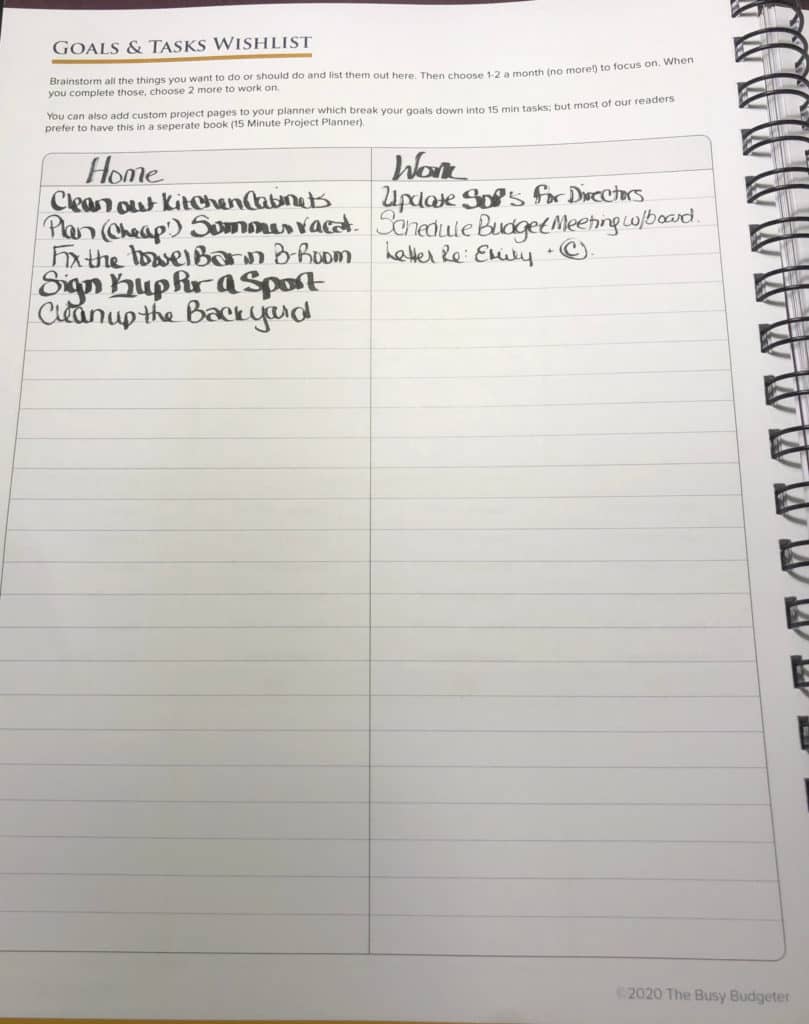 GOALS & TASKS WISHLIST
Brainstorm all the things you want to do or should do and list them out here. Then choose 1-2 a month (no more!) to focus on. When
you complete those, choose 2 more to work on.
You can also add custom project pages to your planner which break your goals down into 15 min tasks; but most of our readers
prefer to have this in a seperate book (15 Minute Project Planner).
Home
Clean out Kitchen Cabinets
Plan (Cheap!) Summer vacat.
Fix the towel Bar in B-Room
Sign K up for a Sport
Clean up the Backyard
Work
Update SOP's for Directors
Schedule Budget Meeting w/board.
Letter Re: + ©.
©2020 The Busy Budgeter